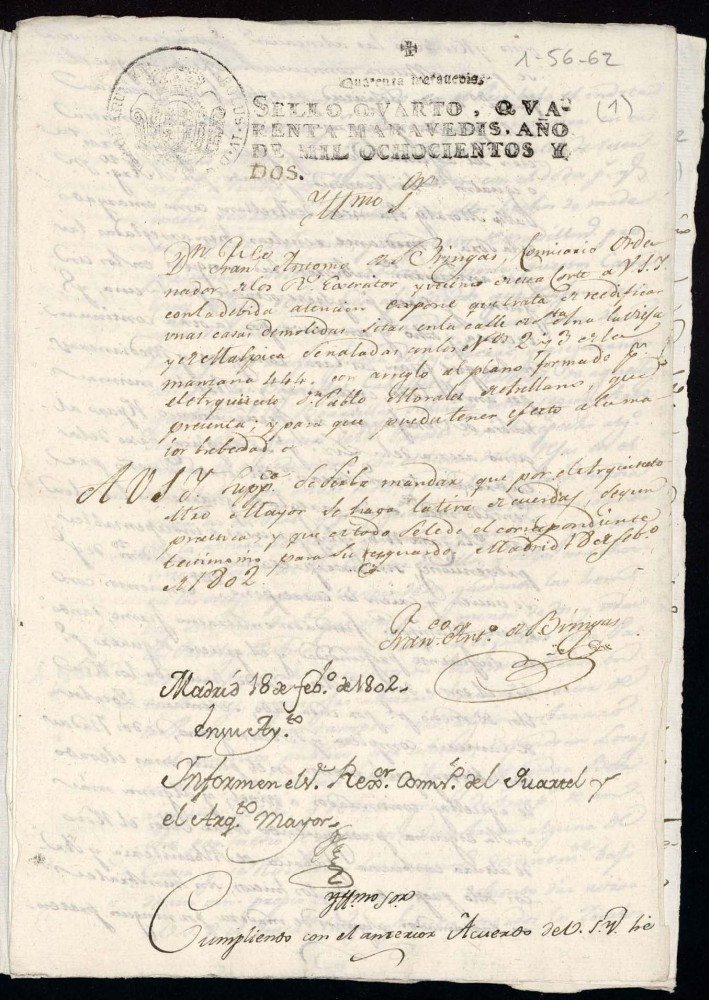 1-56-62
(1)
Quarenta maravedis.
SELLO QVARTO, QVA-
RENTA MARAVEDIS, AÑO
DE MIL OCHOCIENTOS Y
DOS.
Yllmo Sor
Dn Franco Antonio de Bringas, Comisario Orde
nador de los Rs. Exercitos, y vecino de esta Corte a V.S.Y.
con la debida atencion expone que trata de reedificar
unas casas demolidas sitas en la calle de Sta. Elena la vieja
y de Malpica señaladas con los Nos. 2 y 3 de la
manzana 44. con arreglo al plano formado pr.
el Arquitecto Dn. Pablo Morales de Arellano, que
presenta; y para que pueda tener efecto a la ma
ior brebedad.
A V.S.Y. suppco. se sirba mandar, que por el Arquitecto
Mro Mayor se haga la tira de cuerdas, segun
practica; y que de todo se le dé el correspondiente
testimonio, para su resguardo. Madrid 18 de Febo.
de 1802.
Franco. Anto. de Bringas
Madrid 18 de febo. de 1802.
En su Ayto.
Informen el Sr. Rexor. Comso. del Quartel y
el Arqto. Mayor
Yllmo Sor
Cumpliendo con el anterior Acuerdo de V.S.Y. he